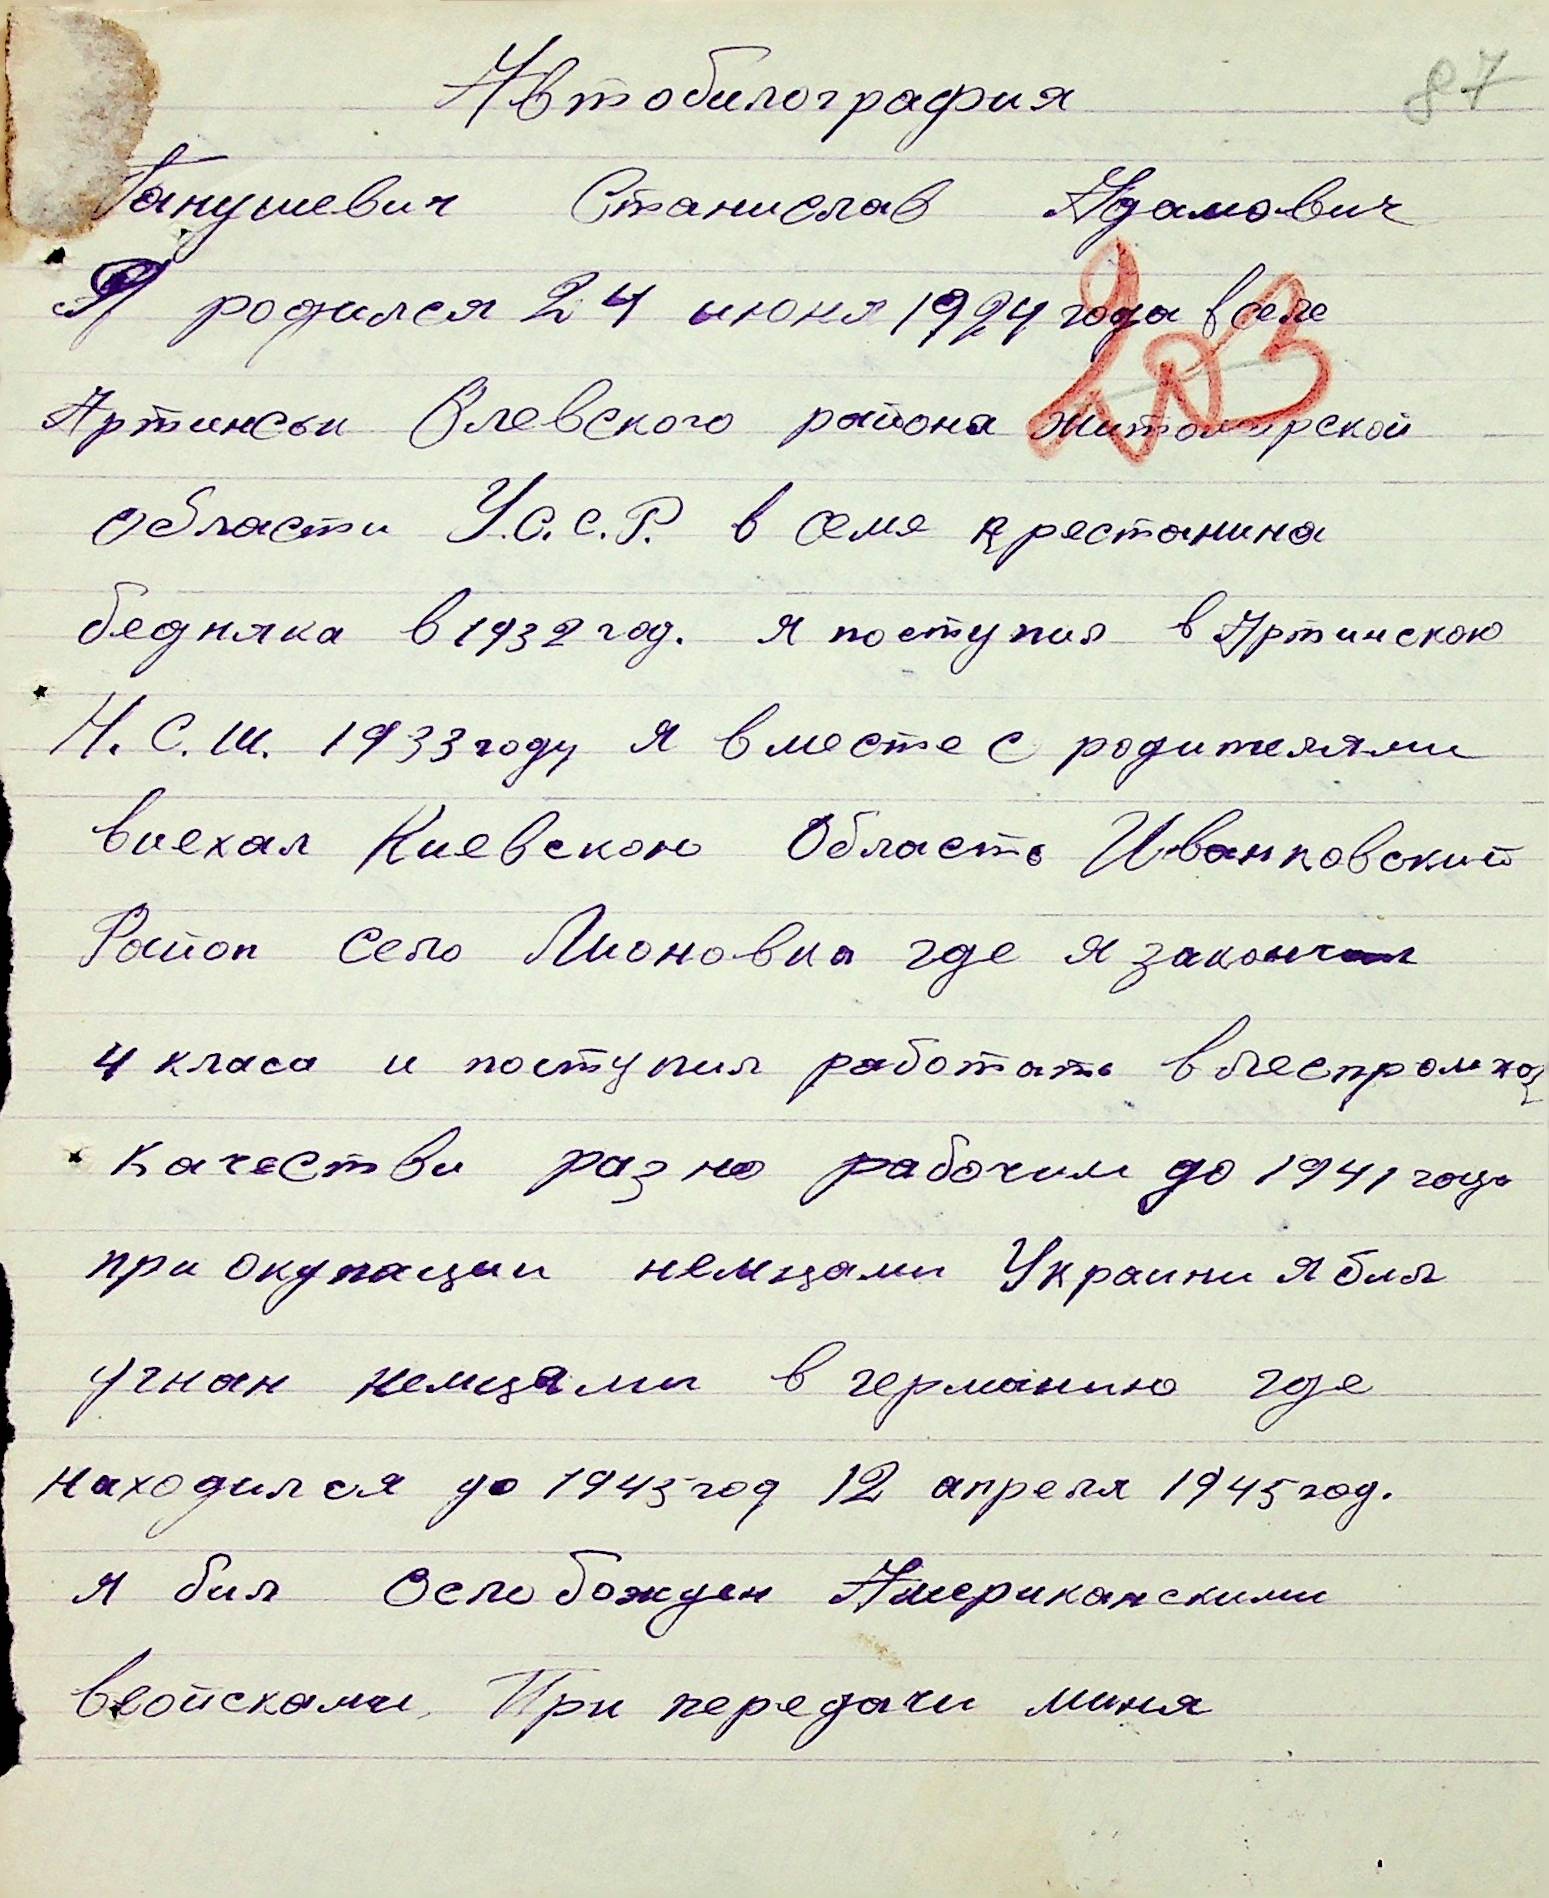 Автобилография
87
Ганушевич Станислав Адамович
Я родился 24 июня 1924 года в селе
203
Артинськ Олевского района житомирской
области У.С.С.Р. в семе крестанина
бедняка в 1932 год. я поступил в Артинскою
Н.С.Ш. 1933 году я вместе с родителями
виехал Киевскою Область Иванковский
Район Село Лионовка где я закончил
4 класа и поступил работать в леспромхоз
качестви разно рабочим до 1941 года
при окупации немцами Украини я бил
угнан немцами в германию где
находился до 1945 год 12 апреля 1945 год.
я бил Ослобожден Американскими
войсками. При передачи миня